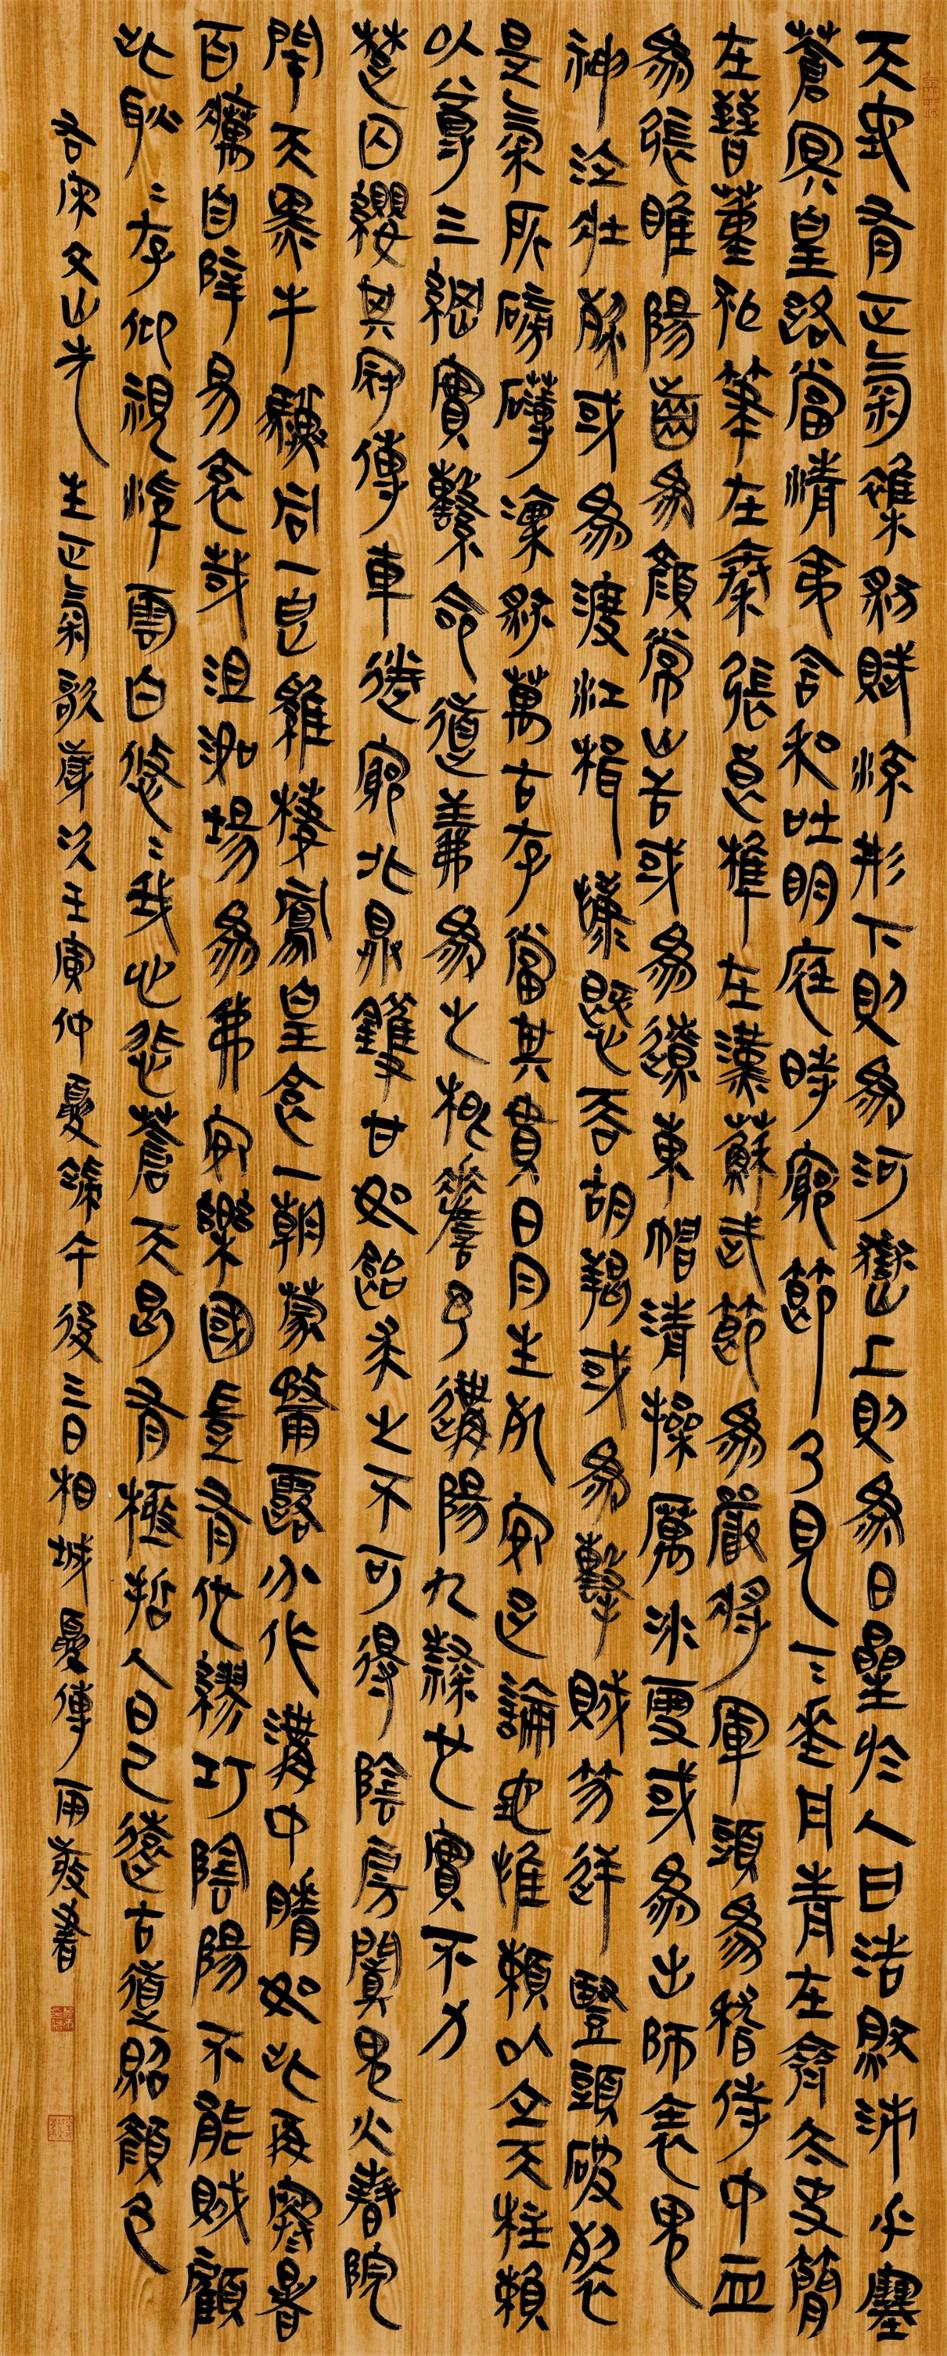 天地有正氣雜然賦流形下則為河嶽上則為日星於人曰浩然沛乎塞
蒼冥皇路當清夷含和吐明庭時窮節乃見一一垂丹青在齊太史簡
在晉董狐筆在秦張良椎在漢蘇武節為嚴將軍頭為嵇侍中血
為張睢陽齒為顏常山舌或為遼東帽清操厲冰雪或為出師表鬼
神泣壯烈或為渡江楫慷慨吞胡羯或為擊賊笏逆豎頭破裂
是氣所磅礴凜烈萬古存當其貫日月生死安足論地維賴以立天柱賴
以尊三綱實繫命道義為之根嗟予遘陽九隸也實不力
楚囚纓其冠傳車送窮北鼎鑊甘如飴求之不可得陰房闐鬼火春院
閟天黑牛驥同一皂雞棲鳳皇食一朝蒙霧露分作溝中瘠如此再寒暑
百癘自辟易哀哉沮洳場為我安樂國豈有他繆巧陰陽不能賊顧
此耿耿存仰視浮雲白悠悠我心悲蒼天曷有極哲人日已遠古道照顏色
右宋文山先生正氣歌歲次壬寅仲夏端午後三日相城夏傳敬書